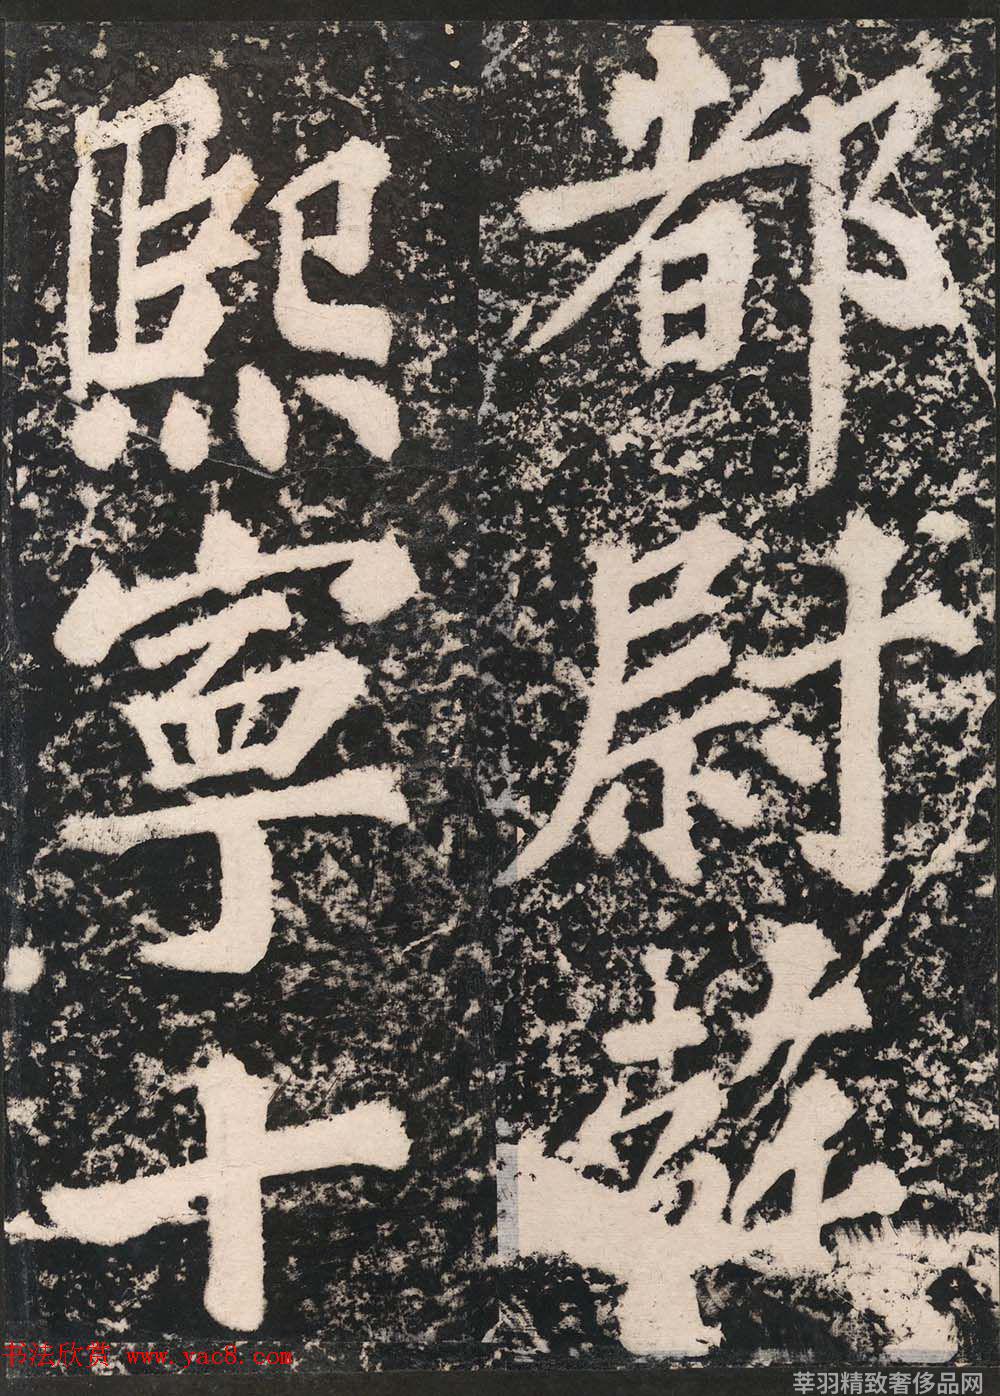 都尉蘇
熙寧十
书法欣赏 www.yac8.com
莘羽精致奢侈品网